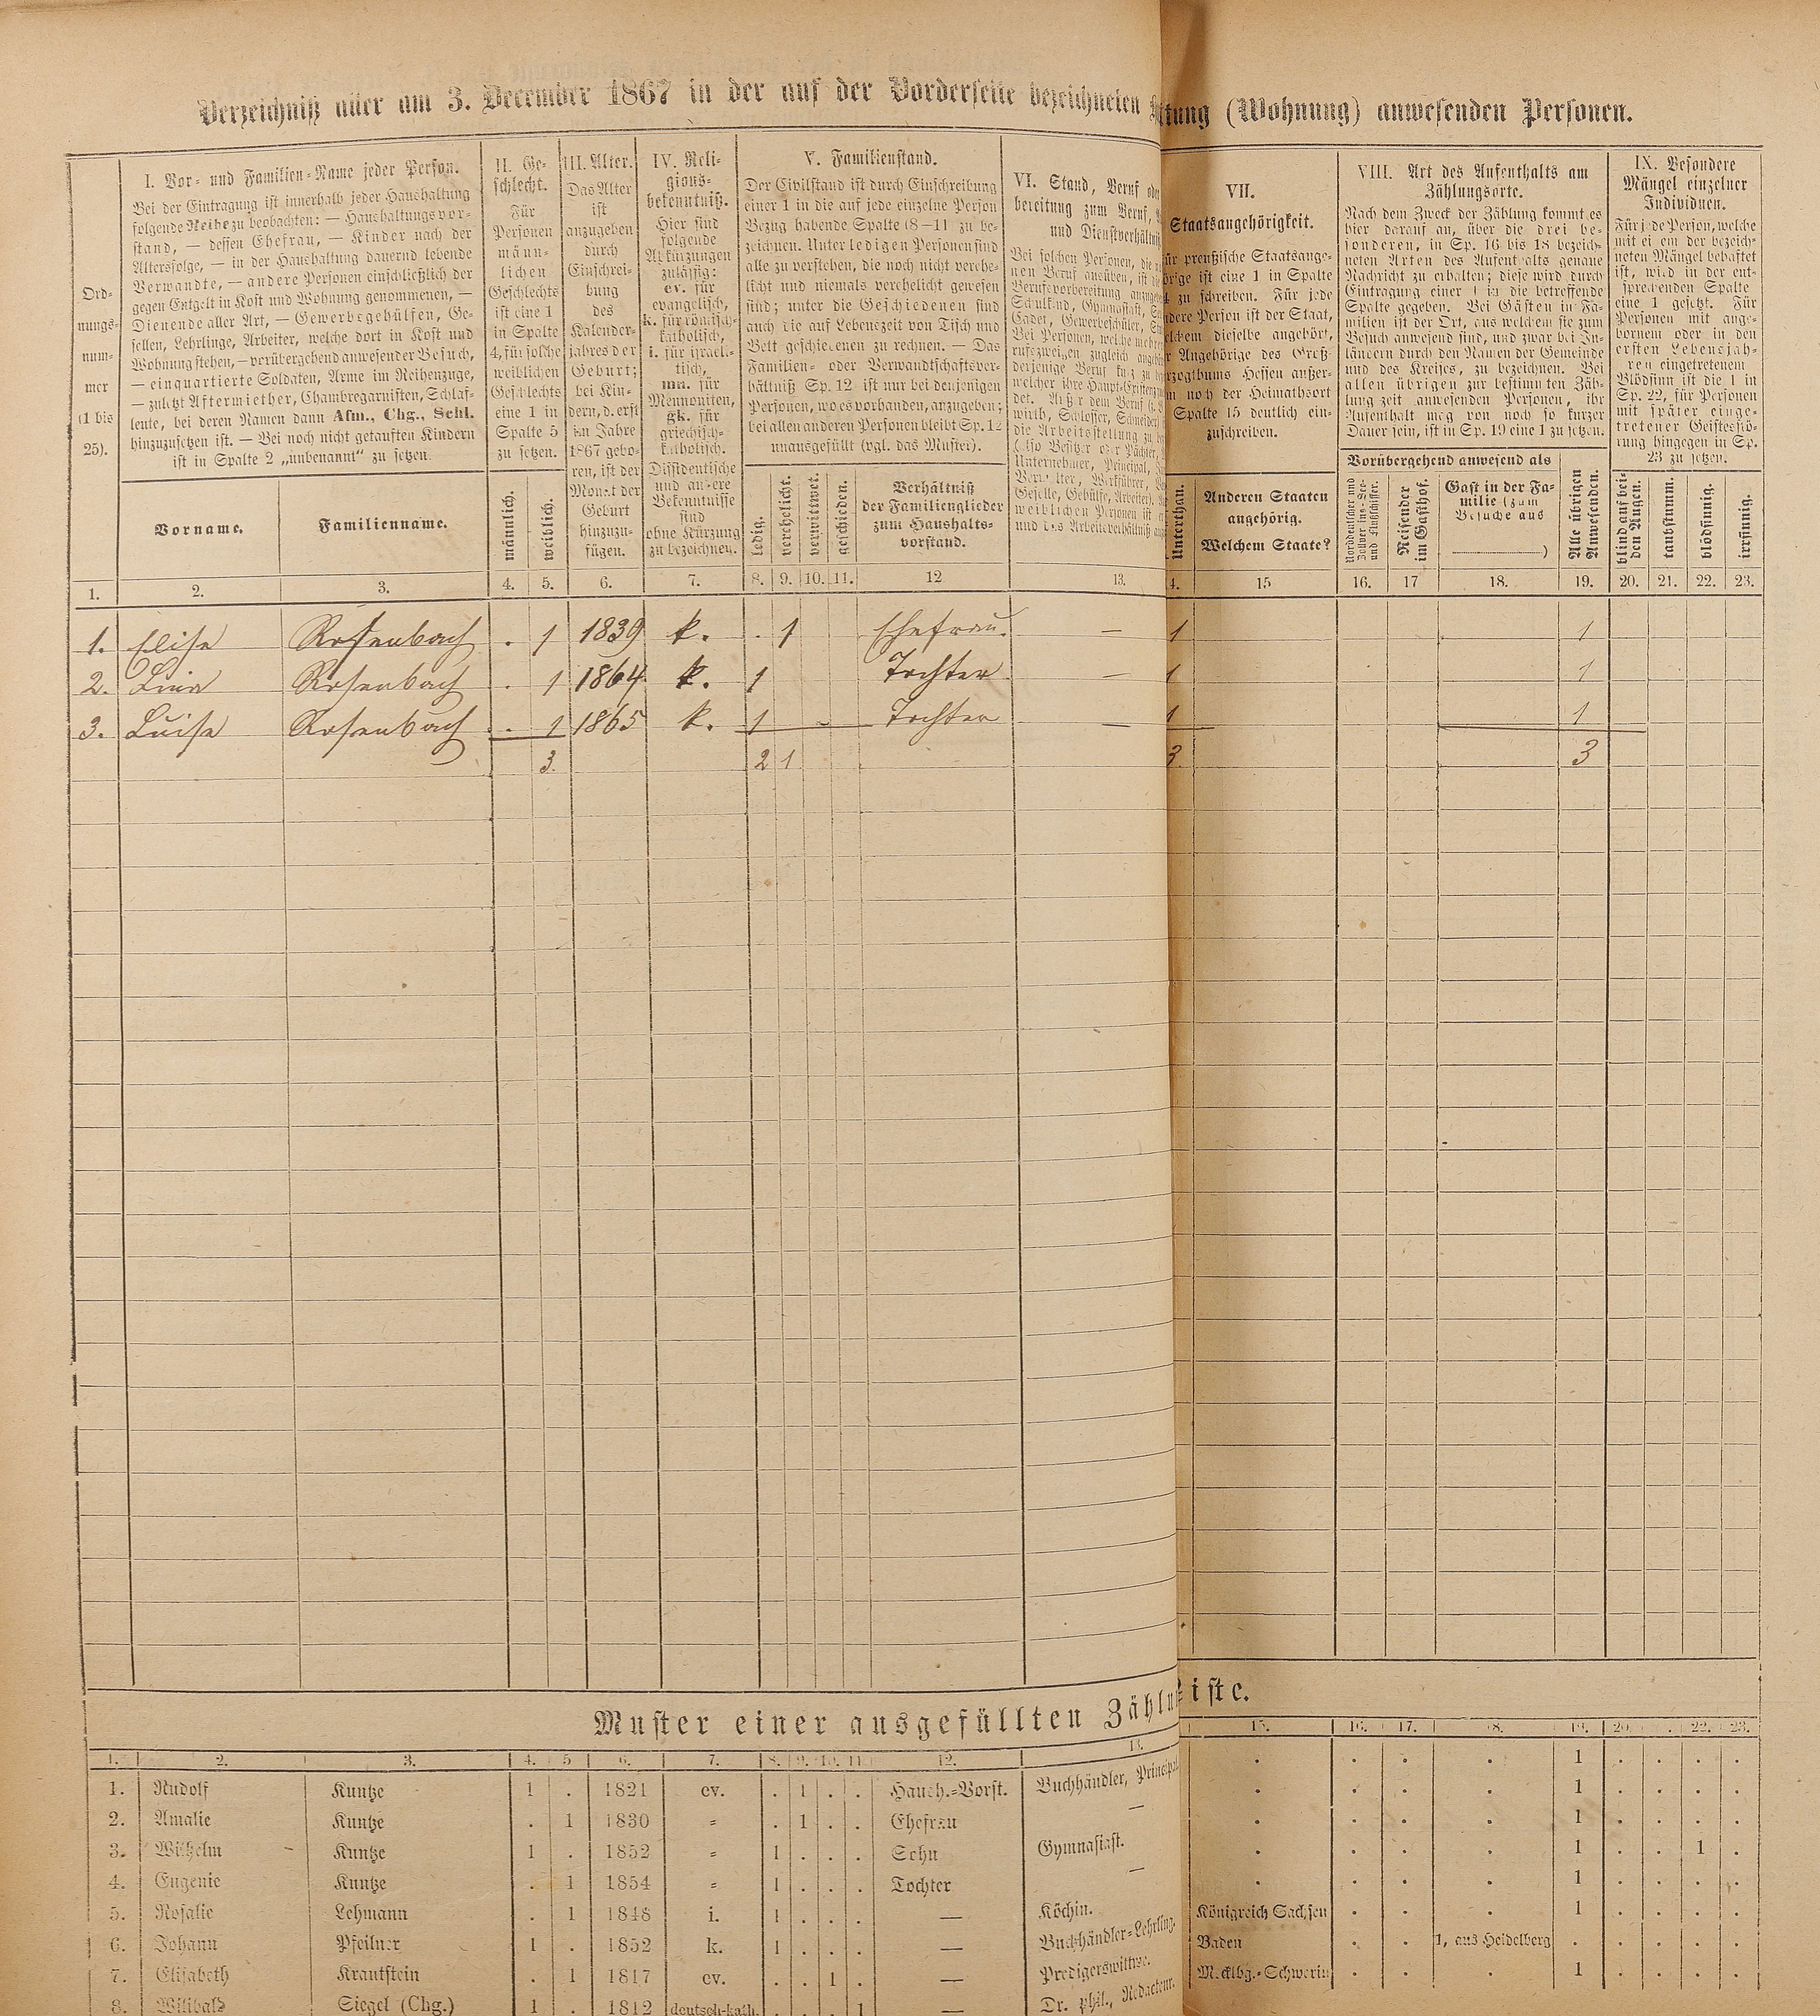 Verzeichniß aller am 3. December 1867 in der auf der Vorderseite bezeichneten
tung (Wohnung) anwesenden Personen.
Ord-
nungs-
num-
mer
(1 bis
25).
I. Vor- und Familien-Name jeder Person.
Bei der Eintragung ist innerhalb jeder Haushaltung
folgende Reihe zu beobachten: — Haushaltungsvor-
stand, — dessen Ehefrau, — Kinder nach der
Altersfolge, — in der Haushaltung dauernd lebende
Verwandte, — andere Personen einschließlich der
gegen Entgelt in Kost und Wohnung genommenen, —
Dienende aller Art, — Gewerbsgehülfen, Ge-
sellen, Lehrlinge, Arbeiter, welche dort in Kost und
Wohnung stehen, — vorübergehend anwesender Besuch,
— einquartierte Soldaten, Arme im Reihenzuge,
— zuletzt Aftermiether, Chambregarnisten, Schlaf-
leute, bei deren Namen dann Afm., Chg., Schl.
hinzuzusetzen ist. — Bei noch nicht getauften Kindern
ist in Spalte 2 „unbenannt“ zu setzen.
Vorname.
Familienname.
II. Ge-
schlecht.
Für
Personen
männ-
lichen
Geschlechts
ist eine 1
in Spalte
4, für solche
weiblichen
Geschlechts
eine 1 in
Spalte 5
zu setzen.
männlich.
weiblich.
III. Alter.
Das Alter
ist
anzugeben
durch
Einschrei-
bung
des
Kalender-
jahres der
Geburt;
bei Kin-
dern, d. erst
im Jahre
1867 gebo-
ren, ist der
Monat der
Geburt
hinzuzu-
fügen.
IV. Reli-
gions-
bekenntniß.
Hier sind
folgende
Abkürzungen
zulässig:
ev. für
evangelisch,
k. für römisch-
katholisch,
i. für israeli-
tisch,
mn. für
Mennoniten,
gk. für
griechisch-
katholisch.
Dissidentische
und andere
Bekenntnisse
sind
ohne Kürzung
zu bezeichnen.
V. Familienstand.
Der Civilstand ist durch Einschreibung
einer 1 in die auf jede einzelne Person
Bezug habende Spalte (8—11) zu be-
zeichnen. Unter ledigen Personen sind
alle zu verstehen, die noch nicht verehe-
licht und niemals verehelicht gewesen
sind; unter die Geschiedenen sind
auch die auf Lebenszeit von Tisch und
Bett geschiedenen zu rechnen. — Das
Familien- oder Verwandtschaftsver-
hältniß Sp. 12 ist nur bei denjenigen
Personen, wo es vorhanden, anzugeben;
bei allen anderen Personen bleibt Sp. 12
unausgefüllt (vgl. das Muster).
ledig.
verehelicht.
verwittwet.
geschieden.
Verhältniß
der Familienglieder
zum Haushalts-
vorstand.
VI. Stand, Beruf oder
bereitung zum Beruf,
und Dienstverhältniß
VII.
Staatsangehörigkeit.
für preußische Staatsange-
hörige ist eine 1 in Spalte
zu schreiben. Für jede
andere Person ist der Staat,
welchem dieselbe angehört,
Angehörige des Groß-
herzogthums Hessen außer-
noch der Heimathsort
Spalte 15 deutlich ein-
zuschreiben.
Unterthan.
Anderen Staaten
angehörig.
Welchem Staate?
VIII. Art des Aufenthalts am
Zählungsorte.
Nach dem Zweck der Zählung kommt es
hier darauf an, über die drei be-
sonderen, in Sp. 16 bis 18 bezeich-
neten Arten des Aufenthalts genaue
Nachricht zu erhalten; diese wird durch
Eintragung einer 1 in die betreffende
Spalte gegeben. Bei Gästen in Fa-
milien ist der Ort, aus welchem sie zum
Besuch anwesend sind, und zwar bei In-
ländern durch den Namen der Gemeinde
und des Kreises, zu bezeichnen. Bei
allen übrigen zur bestimmten Zäh-
lungszeit anwesenden Personen, ihr
Aufenthalt mag von noch so kurzer
Dauer sein, ist in Sp. 19 eine 1 zu setzen.
Vorübergehend anwesend als
Norddeutscher und
Zollvereins-See-
und Flußschiffer.
Reisender
im Gasthof.
Gast in der Fa-
milie (zum
Besuche aus
)
Alle übrigen
Anwesenden.
IX. Besondere
Mängel einzelner
Individuen.
Für jede Person, welche
mit einem der bezeich-
neten Mängel behaftet
ist, wird in der ent-
sprechenden Spalte
eine 1 gesetzt. Für
Personen mit ange-
bornem oder in den
ersten Lebensjah-
ren eingetretenem
Blödsinn ist die 1 in
Sp. 22, für Personen
mit später einge-
tretener Geistesstö-
rung hingegen in Sp.
23 zu setzen.
blind auf bei-
den Augen.
taubstumm.
blödsinnig.
irrsinnig.
1. 2. 3. 4. 5. 6. 7. 8. 9. 10. 11. 12 13. 4. 15 16. 17 18. 19. 20. 21. 22. 23.
1. Elise Rosenbach . 1 1839 k. . 1 Ehefrau. — 1 1
2. Lina Rosenbach . 1 1864 k. 1 Tochter — 1 1
3. Luise Rosenbach . 1 1865 k. 1 Tochter — 1 1
3. 2 1 3 3
Muster einer ausgefüllten Zählu
iste.
1. 2. 3. 4. 5 6. 7. 8. 9. 10. 11 12. 13. 15. 16. 17. 18. 19. 20. 22. 23.
1. Rudolf Kuntze 1 . 1821 ev. . 1 . . Haush.-Vorst. Buchhändler, Principal . . . . 1 . . . .
2. Amalie Kuntze . 1 1830 = . 1 . . Ehefrau — . . . . 1 . . . .
3. Wilhelm Kuntze 1 . 1852 = 1 . . . Sohn Gymnasiast. . . . . 1 . . . .
4. Eugenie Kuntze . 1 1854 = 1 . . . Tochter — . . . . 1 . . 1 .
5. Rosalie Lehmann . 1 1848 i. 1 . . . — Köchin. . . . . 1 . . . .
6. Johann Pfeilner 1 . 1852 k. 1 . . . — Buchhändler-Lehrling. Königreich Sachsen . . . 1 . . . .
7. Elisabeth Krautstein . 1 1817 ev. . . 1 . — Predigerswittwe. Baden . . 1, aus Heidelberg . . . . .
8. Wilibald Siegel (Chg.) 1 . 1812 deutsch-kath. . . . 1 — Dr. phil., Redacteur. Mecklbg.-Schwerin . . . 1 . . . .